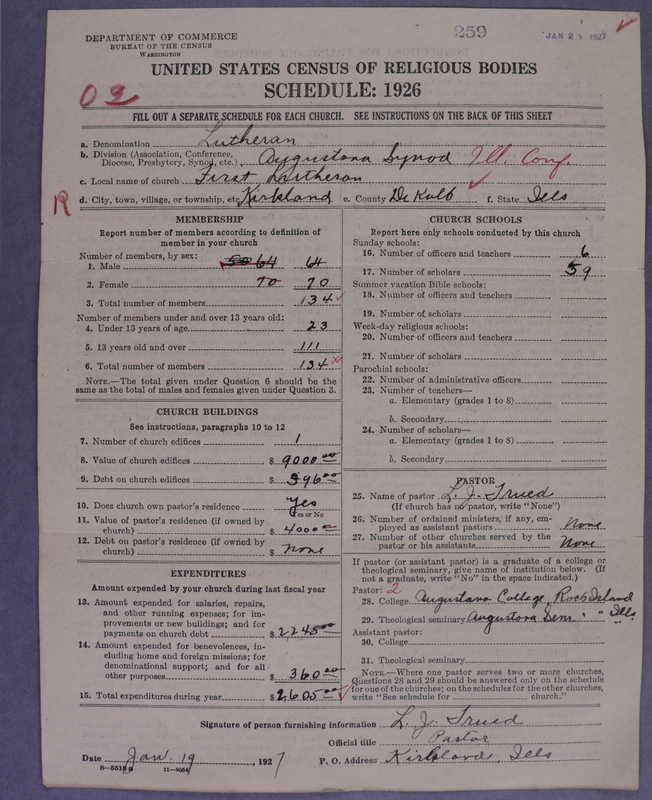 259
JAN 21 1927
DEPARTMENT OF COMMERCE
BUREAU OF THE CENSUS
WASHINGTON
UNITED STATES CENSUS OF RELIGIOUS BODIES
SCHEDULE: 1926
02
FILL OUT A SEPARATE SCHEDULE FOR EACH CHURCH. SEE INSTRUCTIONS ON THE BACK OF THIS SHEET
a. Denomination Lutheran
b. Division (Association, Conference, Diocese, Presbytery, Synod, etc.) Augustana Synod Ill. Conf.
c. Local name of church First Lutheran
R
d. City, town, village, or township, etc. Kirkland e. County DeKalb f. State Ills
MEMBERSHIP
Report number of members according to definition of
member in your church
Number of members, by sex:
1. Male 50 64 64
2. Female 70 70
3. Total number of members 134
Number of members under and over 13 years old:
4. Under 13 years of age 23
5. 13 years old and over 111
6. Total number of members 134
NOTE.—The total given under Question 6 should be the
same as the total of males and females given under Question 3.
CHURCH BUILDINGS
See instructions, paragraphs 10 to 12
7. Number of church edifices 1
8. Value of church edifices $ 9000.00
9. Debt on church edifices $ 396.00
10. Does church own pastor's residence Yes
Yes or No
11. Value of pastor's residence (if owned by
church) $ 4000.00
12. Debt on pastor's residence (if owned by
church) $ None
EXPENDITURES
Amount expended by your church during last fiscal year
13. Amount expended for salaries, repairs,
and other running expenses; for im-
provements or new buildings; and for
payments on church debt $ 2245.00
14. Amount expended for benevolences, in-
cluding home and foreign missions; for
denominational support; and for all
other purposes $ 360.00
15. Total expenditures during year $ 2,605.00
CHURCH SCHOOLS
Report here only schools conducted by this church
Sunday schools:
16. Number of officers and teachers 6
17. Number of scholars 59
Summer vacation Bible schools:
18. Number of officers and teachers
19. Number of scholars
Week-day religious schools:
20. Number of officers and teachers
21. Number of scholars
Parochial schools:
22. Number of administrative officers
23. Number of teachers—
a. Elementary (grades 1 to 8)
b. Secondary
24. Number of scholars—
a. Elementary (grades 1 to 8)
b. Secondary
PASTOR
25. Name of pastor L. J. Trued
(If church has no pastor, write "None")
26. Number of ordained ministers, if any, em-
ployed as assistant pastors None
27. Number of other churches served by the
pastor or his assistants None
If pastor (or assistant pastor) is a graduate of a college or
theological seminary, give name of institution below. (If
not a graduate, write "No" in the space indicated.)
Pastor: 2
28. College Augustana College, Rock Island
29. Theological seminary Augustana Sem. " " Ills
Assistant pastor:
30. College
31. Theological seminary
NOTE.—Where one pastor serves two or more churches,
Questions 28 and 29 should be answered only on the schedule
for one of the churches; on the schedules for the other churches,
write "See schedule for church."
Signature of person furnishing information L. J. Trued
Official title Pastor
Date Jan 19, 1927 P. O. Address Kirkland, Ills
8-5518a 11-9054